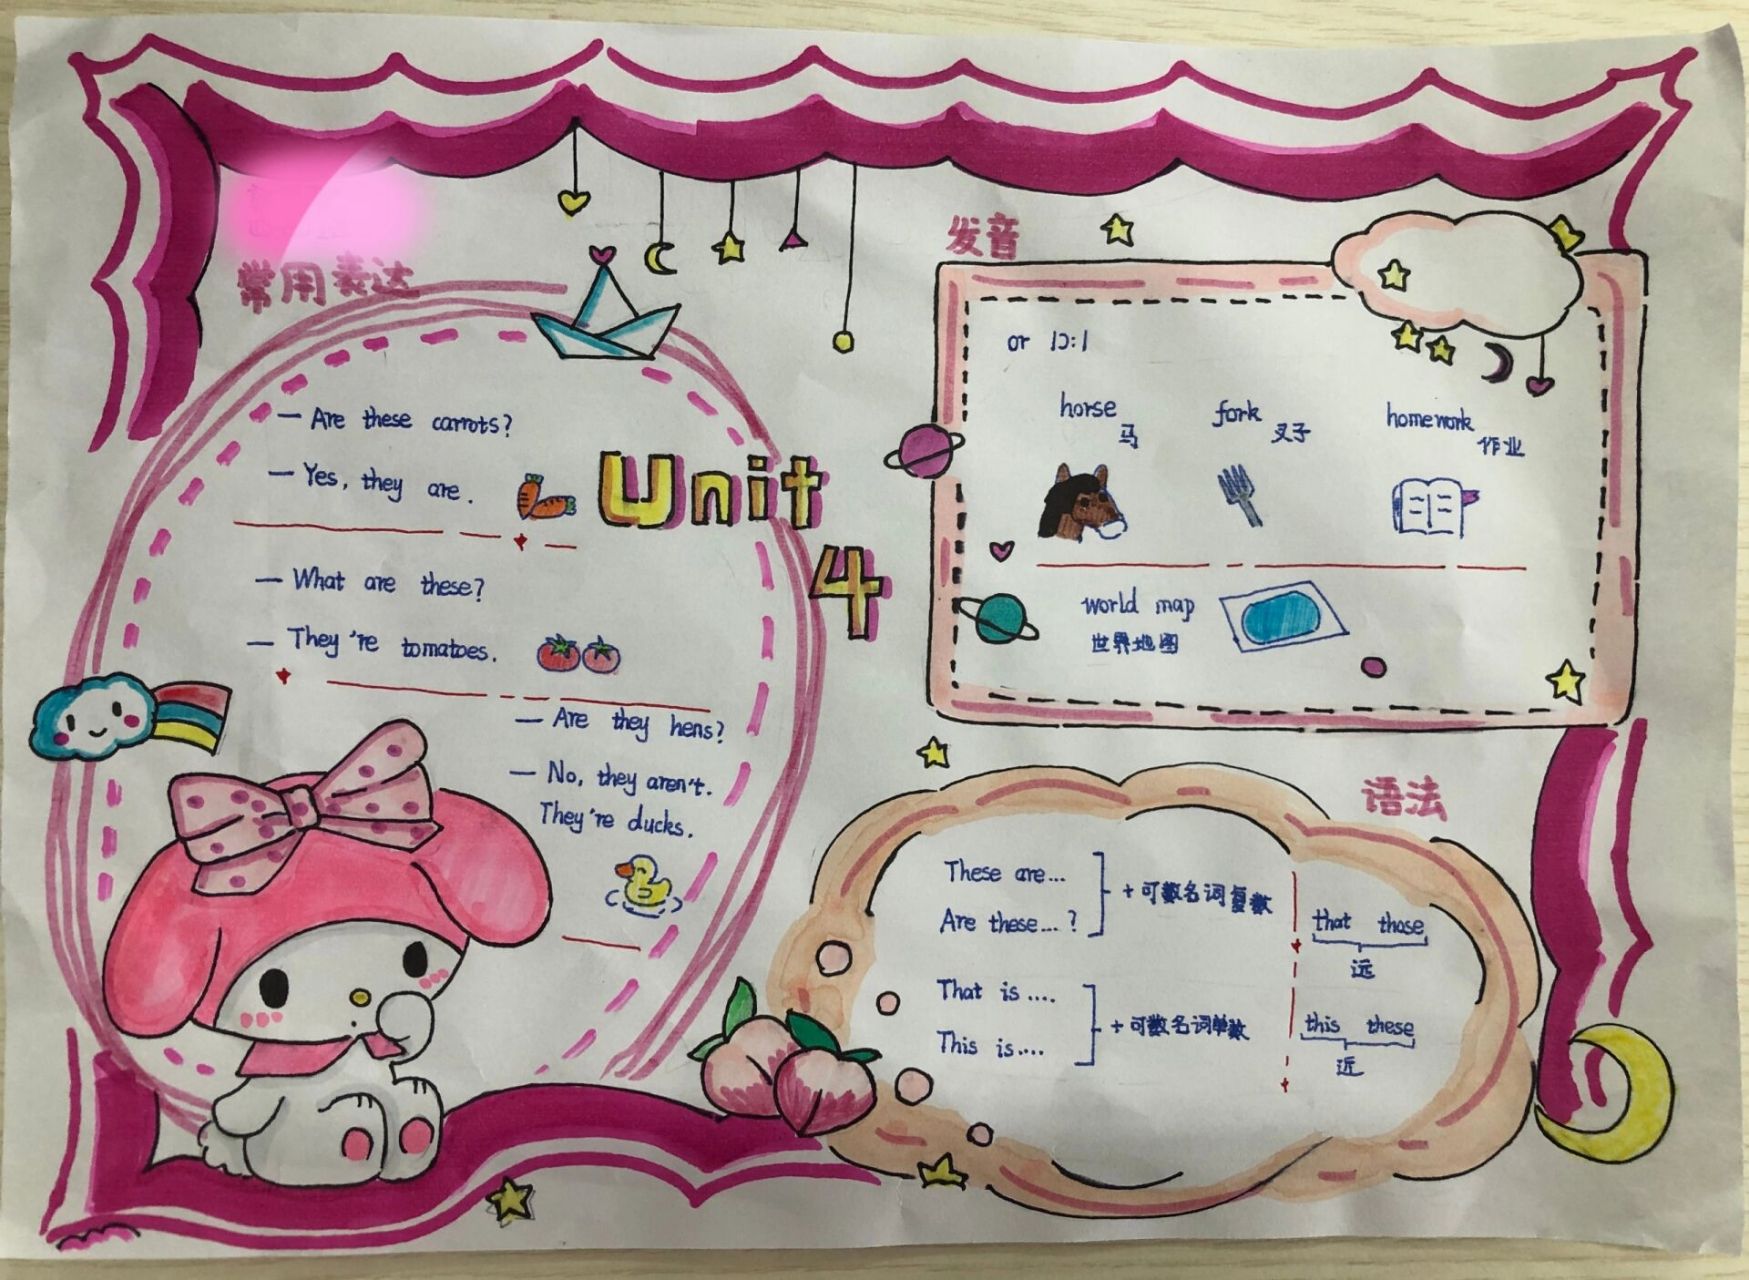 常用表达
— Are these carrots?
— Yes, they are.
— What are these?
— They're tomatoes.
— Are they hens?
— No, they aren't.
They're ducks.
Unit
4
发音
or [ɔ:]
horse
马
fork
叉子
homework
作业
world map
世界地图
语法
These are...
Are these...?
+可数名词复数
That is....
This is....
+可数名词单数
that those
远
this these
近